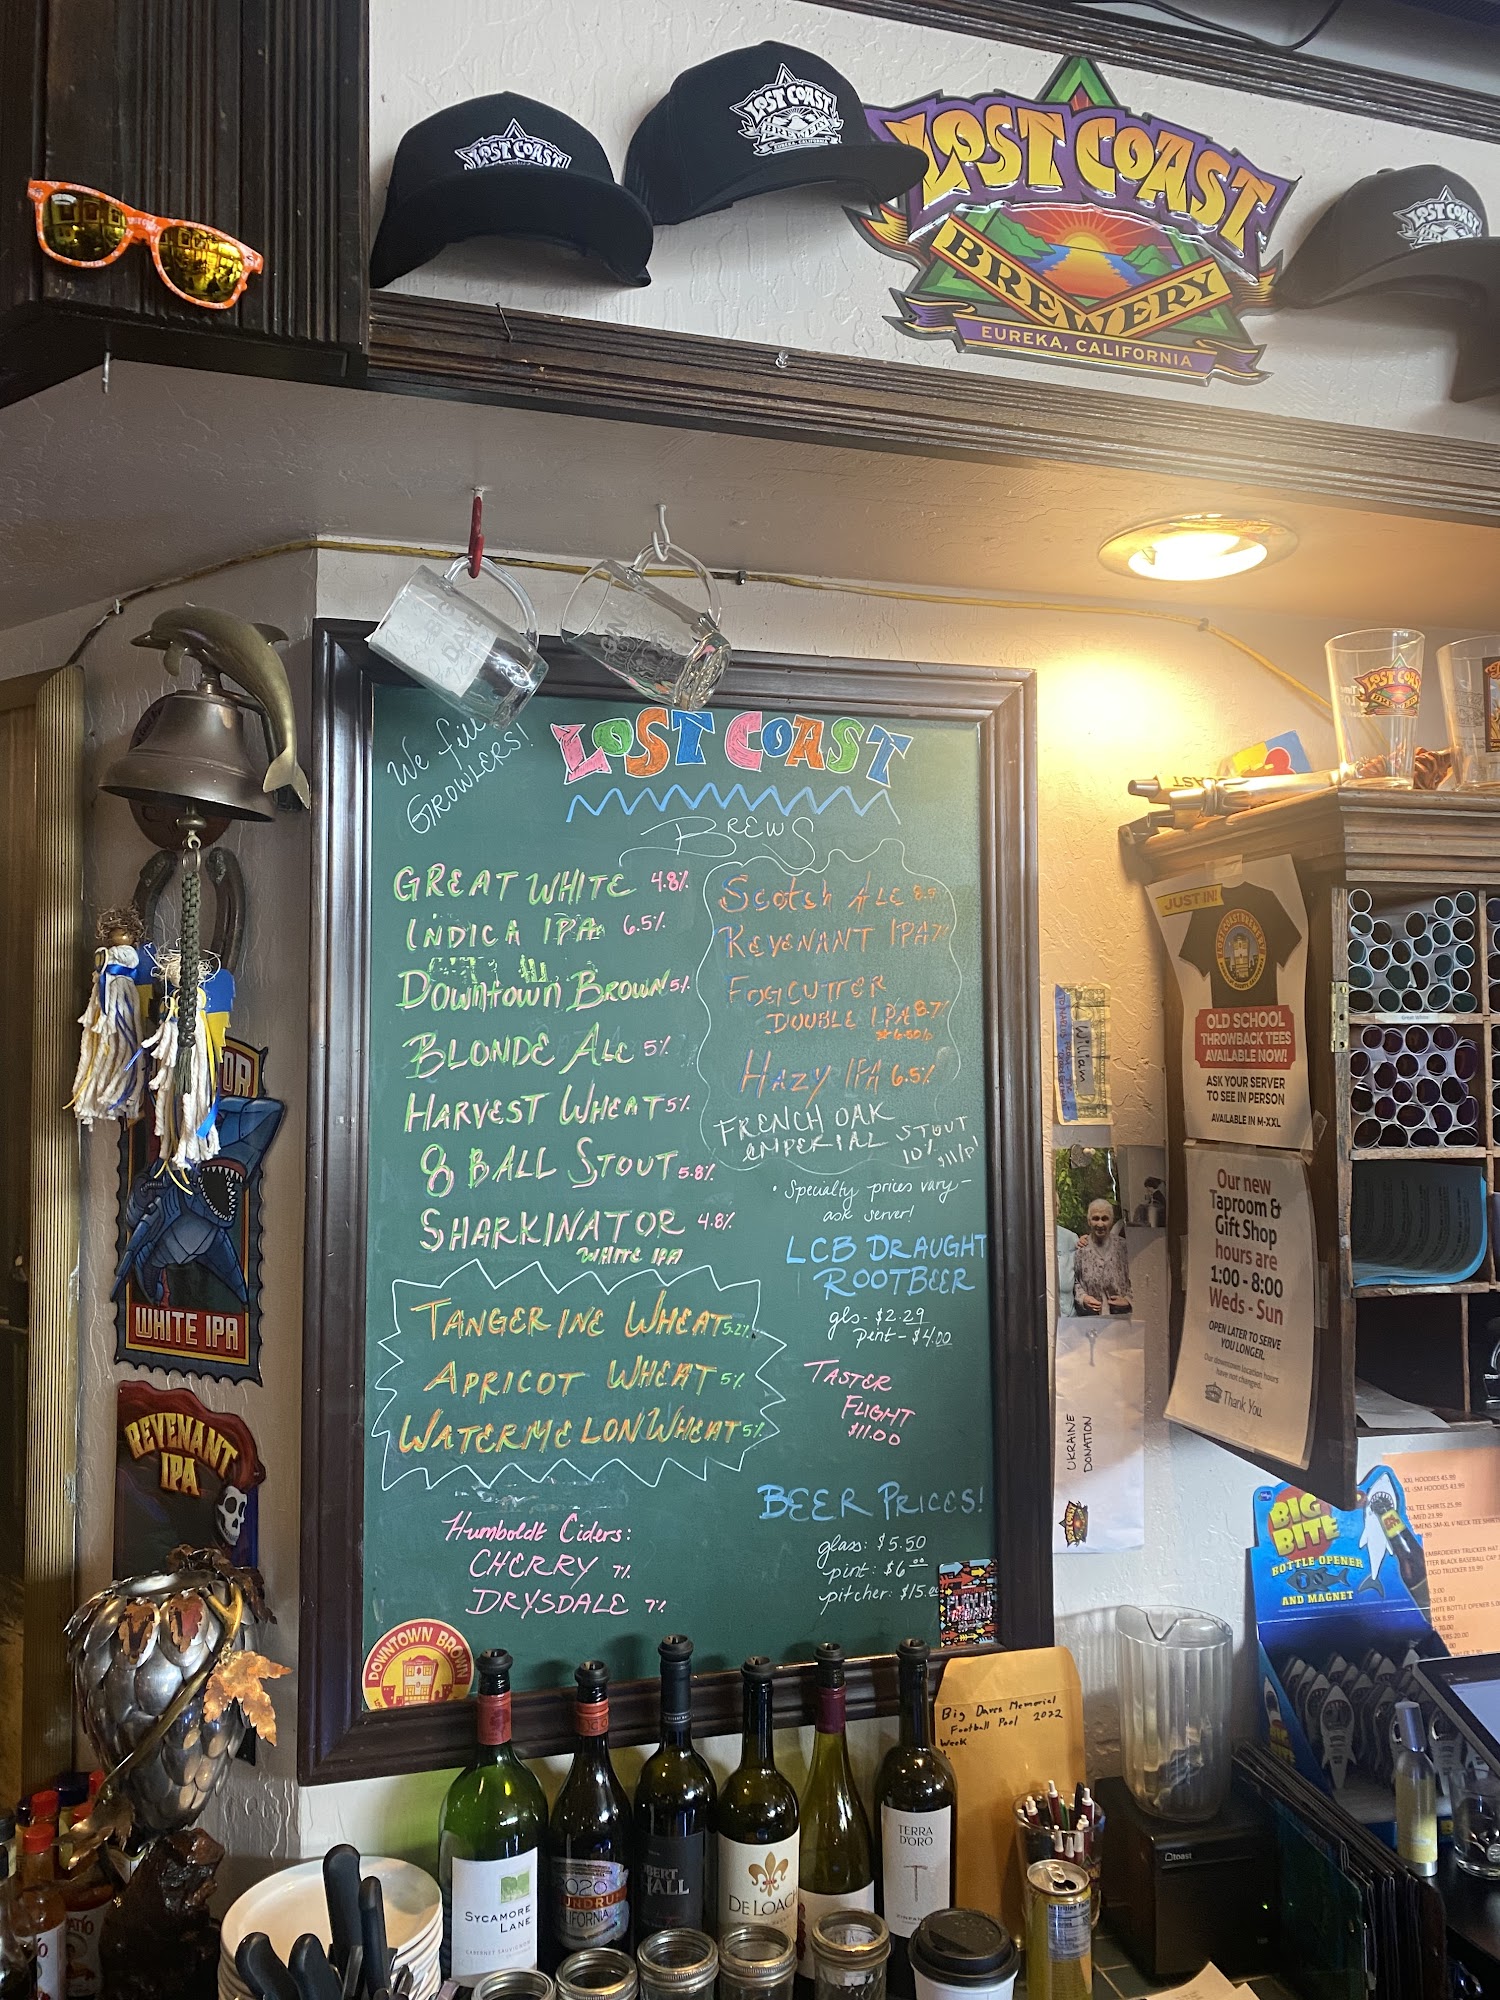 LOST COAST
LOST COAST
BREWERY
EUREKA, CALIFORNIA
LOST COAST
BREWERY
EUREKA, CALIFORNIA
LOST COAST
BIG
DAVE
We fill
GROWLERS!
LOST COAST
BREWS
GREAT WHITE 4.8%
INDICA IPA 6.5%
DOWNTOWN BROWN 5%
BLONDE ALE 5%
HARVEST WHEAT 5%
8 BALL STOUT 5.8%
SHARKINATOR 4.8%
WHITE IPA
TANGERINE WHEAT 5.2%
APRICOT WHEAT 5%
WATERMELON WHEAT 5%
Humboldt Ciders:
CHERRY 7%
DRYSDALE 7%
SCOTCH ALE 8.5%
REVENANT IPA 7%
FOGCUTTER
DOUBLE IPA 8.7%
HAZY IPA 6.5%
FRENCH OAK
IMPERIAL STOUT
10%
$11/P!
• Specialty prices vary -
ask server!
LCB DRAUGHT
ROOTBEER
gls - $2.29
pint - $4.00
TASTER
FLIGHT
$11.00
BEER PRICES!
glass: $5.50
pint: $6.00
pitcher: $15.00
DOWNTOWN BROWN
WHITE IPA
REVENANT
IPA
LOST COAST
JUST IN!
LOST COAST BREWERY
OLD SCHOOL
THROWBACK TEES
AVAILABLE NOW!
ASK YOUR SERVER
TO SEE IN PERSON
AVAILABLE IN M-XXL
Our new
Taproom &
Gift Shop
hours are
1:00 - 8:00
Weds - Sun
OPEN LATER TO SERVE
YOU LONGER.
Our downtown location hours
have not changed.
Thank You
William
UKRAINE
DONATION
LOST COAST
BIG
BITE
BOTTLE OPENER
AND MAGNET
XXL HOODIES 45.99
Big Daves Memorial
Football Pool 2022
Week
SYCAMORE
LANE
CABERNET SAUVIGNON
2020
CALIFORNIA
HALL
DE LOACH
TERRA
D'ORO
toast